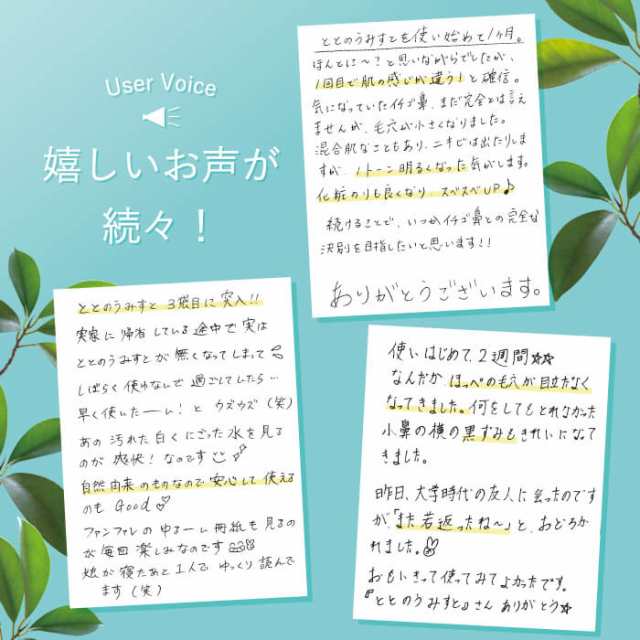 User Voice
嬉しいお声が
続々！
ととのうみすとを使い始めて1ヶ月。
ほんとに〜？と思いながらでしたが、
1回目で肌の感じが違う！と確信。
気になっていたイチゴ鼻、まだ完全とは言え
ませんが、毛穴が小さくなりました。
混合肌なこともあり、ニキビは出たりしま
すが、1トーン明るくなった気がします。
化粧のりも良くなり、スベスベUP♪
続けることで、いつかイチゴ鼻との完全な
決別を目指したいと思います！！
ありがとうございます。
ととのうみすと 3袋目に突入！！
実家に帰省している途中で実は
ととのうみすとが無くなってしまって
しばらく使わないで過ごしてしたら…
早く使いたーい！とウズウズ（笑）
あの汚れた白くにごった水を見る
のが爽快！なのです
自然由来のものなので安心して使える
のもGood♡
ファンファレのゆるーい冊紙も見るの
が毎回楽しみなのです
娘が寝たあと1人でゆっくり読んで
ます（笑）
使いはじめて、2週間☆☆
なんだか、ほっぺの毛穴が目立たなく
なってきました。何をしてもとれなかった
小鼻の横の黒ずみもきれいになって
きました。
昨日、大学時代の友人に会ったのです
が、「また若返ったね〜」と、おどろか
れました。
おもいきって使ってみてよかったです。
『ととのうみすと』さんありがとう☆